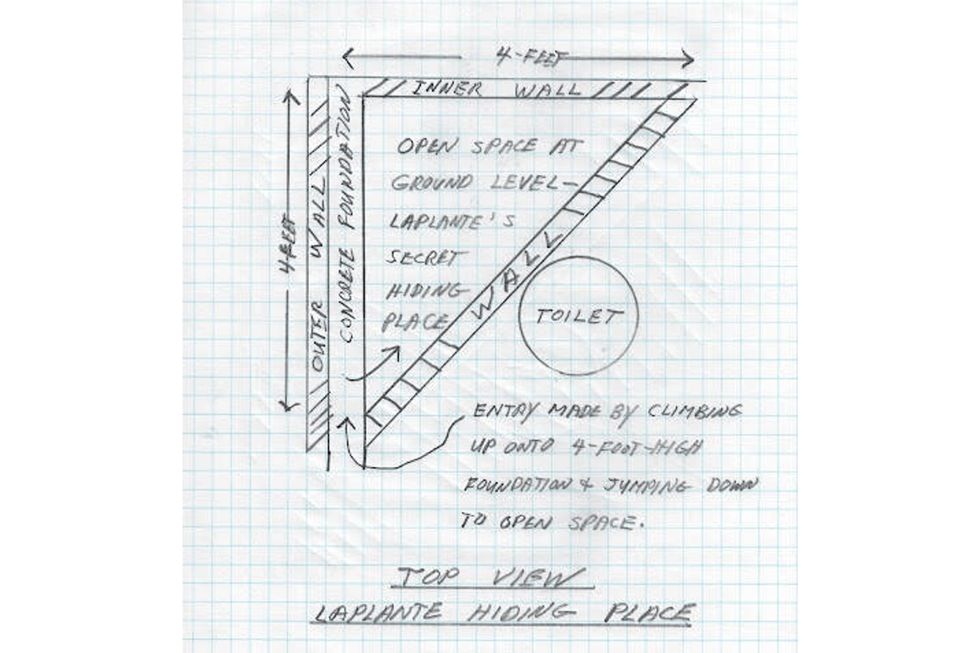 4-FEET
INNER WALL
4-FEET
OUTER WALL
CONCRETE FOUNDATION
OPEN SPACE AT
GROUND LEVEL-
LAPLANTE'S
SECRET
HIDING
PLACE
WALL
TOILET
ENTRY MADE BY CLIMBING
UP ONTO 4-FOOT-HIGH
FOUNDATION & JUMPING DOWN
TO OPEN SPACE.
TOP VIEW
LAPLANTE HIDING PLACE